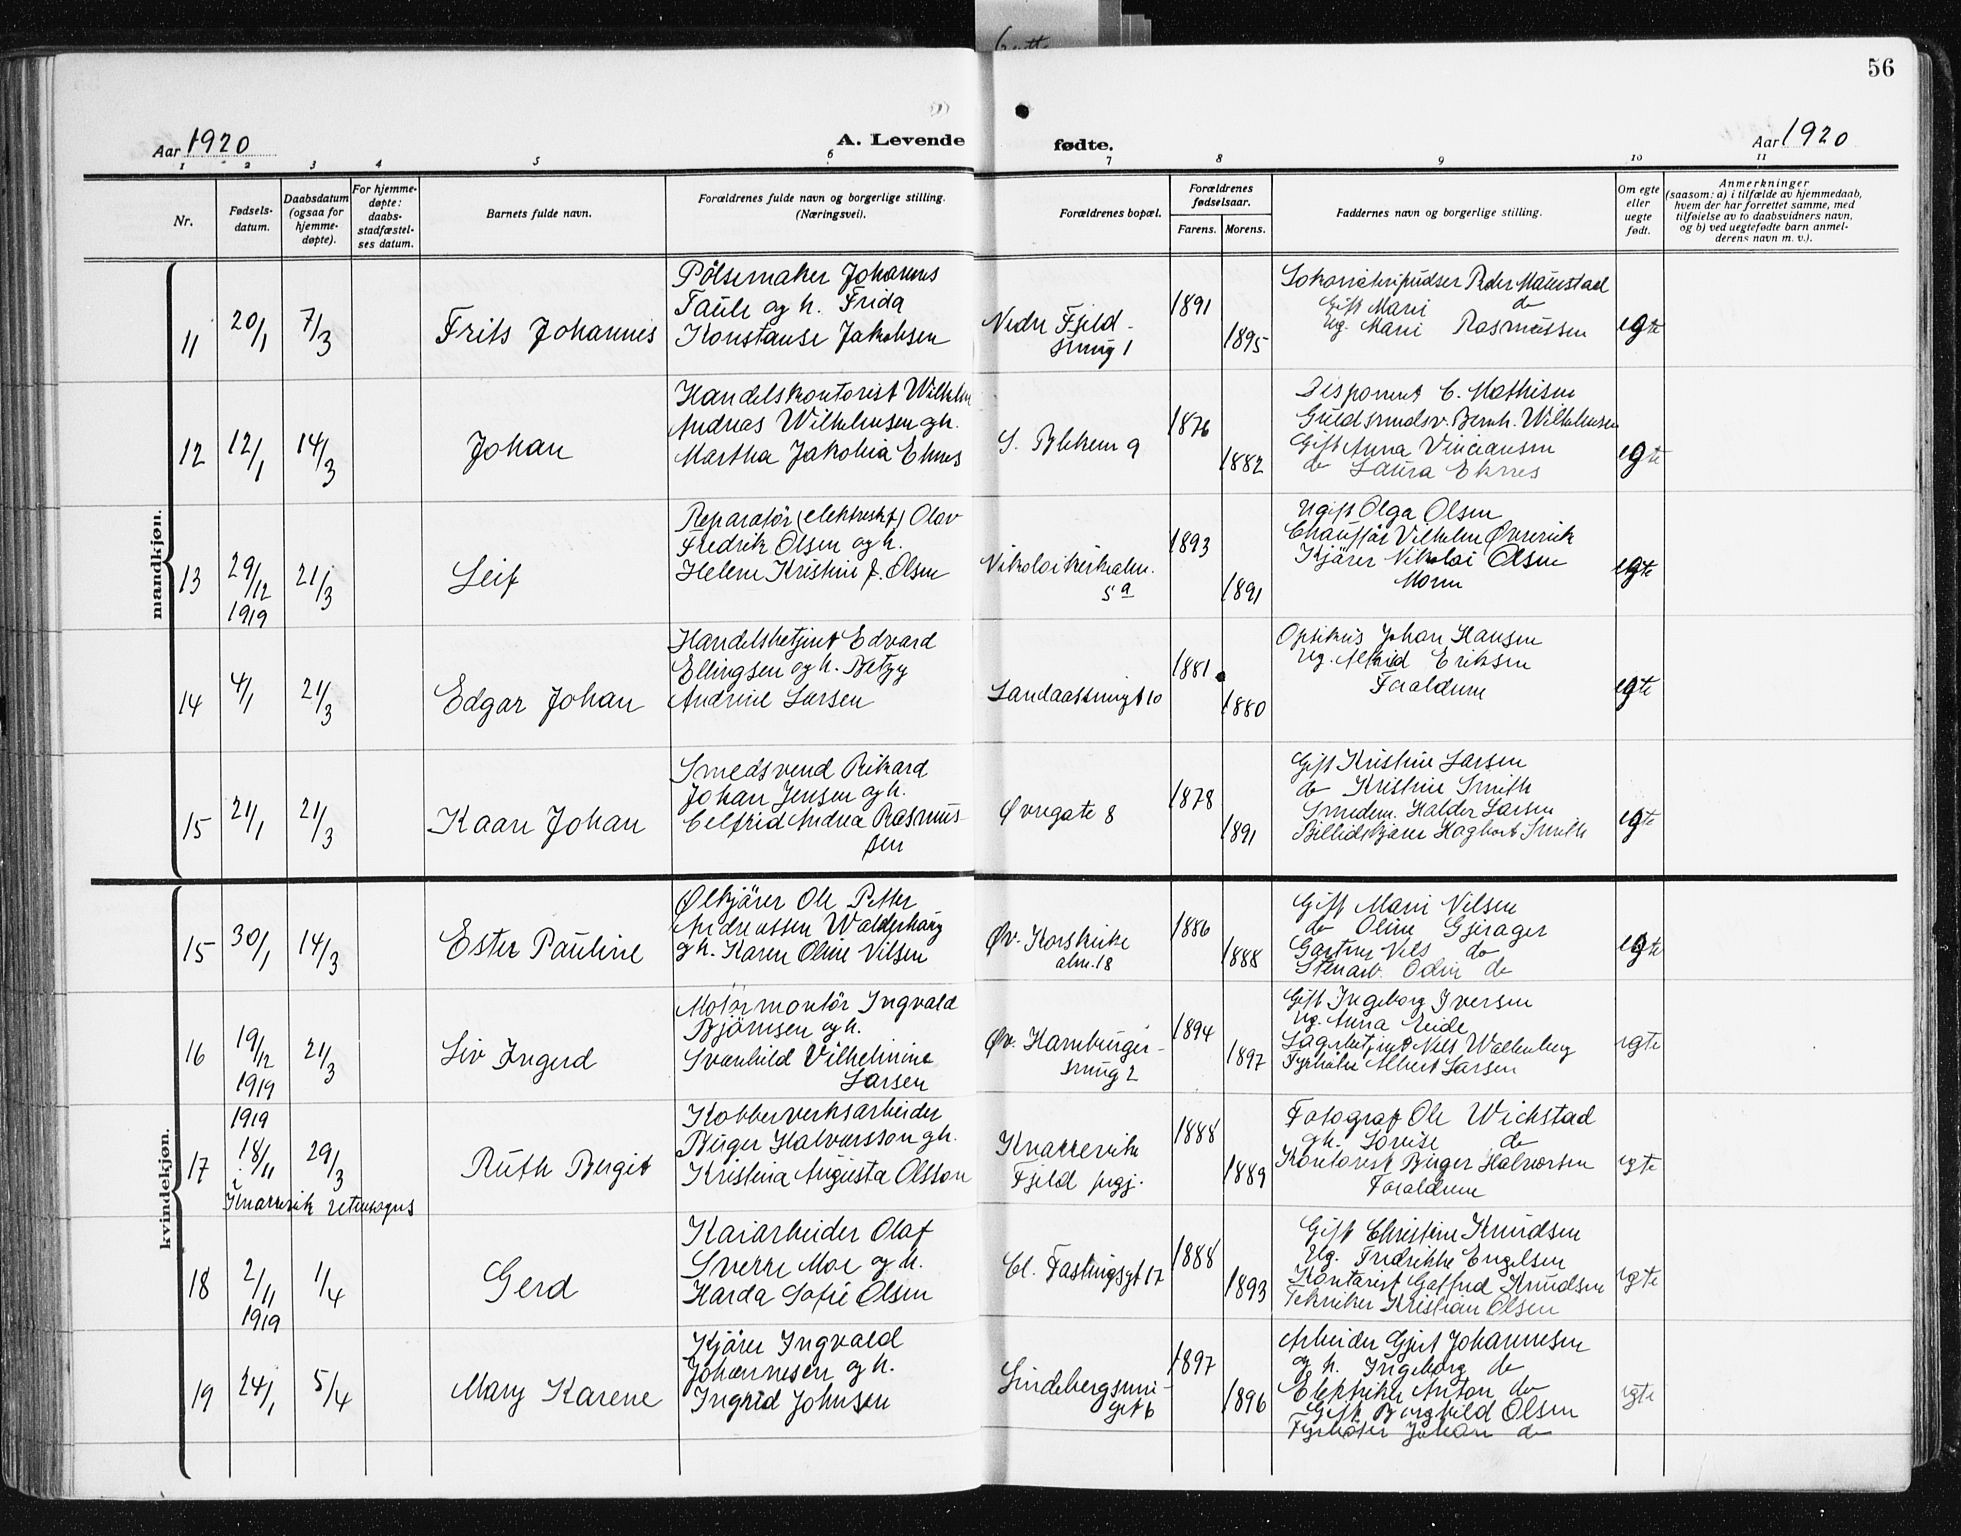 56
Aar 1920
A. Levende fødte.
Aar 1920
1 2 3 4 5 6 7 8 9 10 11
Nr.
Fødsels-
datum.
Daabsdatum
(ogsaa for
hjemme-
døpte).
For hjemme-
døpte:
daabs-
stadfæstel-
ses datum.
Barnets fulde navn.
Forældrenes fulde navn og borgerlige stilling.
(Næringsvei).
Forældrenes bopæl.
Forældrenes
fødselsaar.
Farens. Morens.
Faddernes navn og borgerlige stilling.
Om egte
eller
uegte
født.
Anmerkninger
(saasom: a) i tilfælde av hjemmedaab,
hvem der har forrettet samme, med
tilføielse av to daabsvidners navn,
og b) ved uegtefødte barn anmel-
derens navn m. v.).
mandkjøn.
11
20/1
7/3
Frits Johannes
Pølsemaker Johannes
Taule og h. Frida
Konstanse Jakobsen
Nedre Fjeld-
smug 1
1891
1895
Peder Maurstad
Gift Marie do
Ug. Marie Rasmussen
egte
12
12/1
14/3
Johan
Handelskontorist Wilhelm
Andreas Wilhelmsen og h.
Martha Jakobia Eknes
S. Blekevn 9
1876
1882
Disponent C. Mathisen
Guldsmedsv. Bernh. Wilhelmsen
Gift Anna
do Laura Eknes
egte
13
29/12
1919
21/3
Leif
Reparatör (elektrisk) Olav
Fredrik Olsen og h.
Helene Kristine f. Olsen
Nikolaikirkealm.
5 a
1893
1891
Ugift Olga Olsen
Chauffør Vilhelm Øvrevik
Kjører Nikolai Olsen
Moren
egte
14
4/1
21/3
Edgar Johan
Handelsbetjent Edvard
Ellingsen og h. Betzy
Andrine Larsen
Landaassmugt 10
1881
1880
Optikus Johan Hansen
Ug. Alfrid Eriksen
Forældrene
egte
15
21/1
21/3
Kaare Johan
Smedsvend Rikard
Johan Jensen og h.
Elfrid Andrea Rasmus-
sen
Øvregate 8
1878
1891
Gift Kristine Larsen
do Kristine Smith
Smedem. Haldor Larsen
Hagbart Smith
egte
kvindekjøn.
15
30/1
14/3
Ester Pauline
Ølkjører Ole Petter
Andreassen Walderhaug
og h. Karen Oline Nilsen
Øv. Korskirke
alm. 18
1886
1888
Gift Marie Nilsen
do Oline Gjerager
Gartner Nils do
Stenarb. Odin do
egte
16
19/12
1919
21/3
Liv Ingerd
Motormontör Ingvald
Bjørnsen og h.
Svanhild Vilhelmine
Larsen
Øv. Hamburger-
smug 2
1894
1897
Gift Ingeborg Iversen
Ug. Anna Eide
Lagerbetjent Nils Wallenberg
Fyrbøter Albert Larsen
egte
17
1919
18/11
i
Knarrevik
29/3
Ruth Bergit
Kobberverksarbeider
Birger Halvorsson og h.
Kristina Augusta Olsson
Knarrevik
Fjeld prgj.
1888
1889
Fotograf Ole Wickstad
og h. Lovise do
Kontorist Birger Halvorsen
Forældrene
egte
18
2/11
1919
1/4
Gerd
Kaiarbeider Olaf
Sverre Moe og h.
Harda Sofie Olsen
Cl. Fastingsgt 17
1888
1893
Gift Christine Knudsen
Ug. Fredrikke Engelsen
Kontorist Knudsen
Tekniker Kristian Olsen
egte
19
24/1
5/4
Mary Karene
Kjører Ingvald
Johannesen og h.
Ingrid Johnsen
Lindebergsmu-
get 6
1897
1896
Arbeider Gjert Johannesen
og h. Ingeborg do
Elektriker Anton do
Gift Borghild Olsen
Fyrbøter Johan do
egte